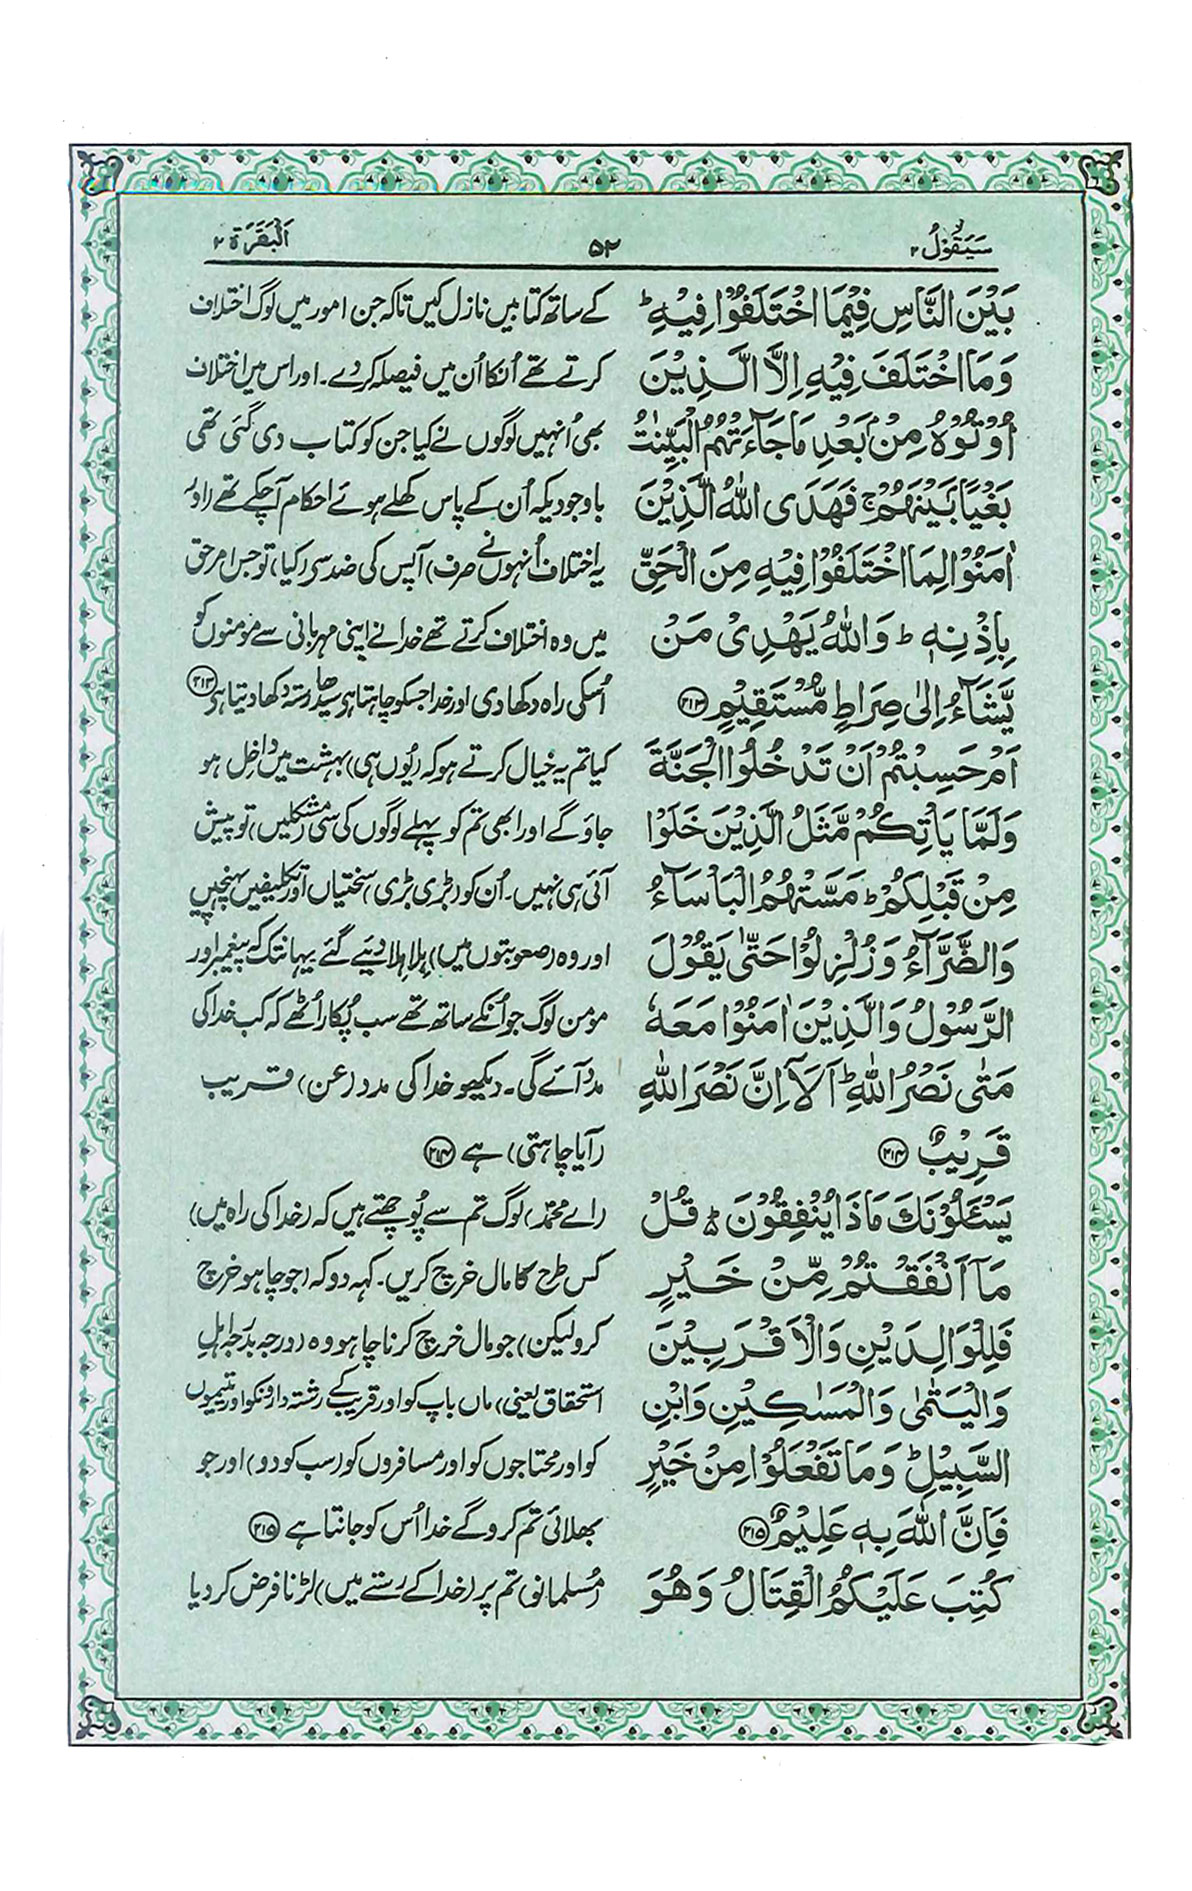 سَيَقُوْلُ ٢ ٥٢ اَلْبَقَرَة ٢
بَيْنَ النَّاسِ فِيْمَا اخْتَلَفُوْا فِيْهِ ؕ
وَمَا اخْتَلَفَ فِيْهِ اِلَّا الَّذِيْنَ
اُوْتُوْهُ مِنْۢ بَعْدِ مَا جَآءَتْهُمُ الْبَيِّنٰتُ
بَغْيًۢا بَيْنَهُمْ ۚ فَهَدَى اللّٰهُ الَّذِيْنَ
اٰمَنُوْا لِمَا اخْتَلَفُوْا فِيْهِ مِنَ الْحَقِّ
بِاِذْنِهٖ ؕ وَاللّٰهُ يَهْدِيْ مَنْ
يَّشَآءُ اِلٰى صِرَاطٍ مُّسْتَقِيْمٍ ٢١٣
اَمْ حَسِبْتُمْ اَنْ تَدْخُلُوا الْجَنَّةَ
وَلَمَّا يَاْتِكُمْ مَّثَلُ الَّذِيْنَ خَلَوْا
مِنْ قَبْلِكُمْ ؕ مَسَّتْهُمُ الْبَاْسَآءُ
وَالضَّرَّآءُ وَزُلْزِلُوْا حَتّٰى يَقُوْلَ
الرَّسُوْلُ وَالَّذِيْنَ اٰمَنُوْا مَعَهٗ
مَتٰى نَصْرُ اللّٰهِ ؕ اَلَاۤ اِنَّ نَصْرَ اللّٰهِ
قَرِيْبٌ ٢١٤
يَسْـَٔلُوْنَكَ مَاذَا يُنْفِقُوْنَ ؕ قُلْ
مَاۤ اَنْفَقْتُمْ مِّنْ خَيْرٍ
فَلِلْوَالِدَيْنِ وَالْاَقْرَبِيْنَ
وَالْيَتٰمٰى وَالْمَسٰكِيْنِ وَابْنِ
السَّبِيْلِ ؕ وَمَا تَفْعَلُوْا مِنْ خَيْرٍ
فَاِنَّ اللّٰهَ بِهٖ عَلِيْمٌ ٢١٥
كُتِبَ عَلَيْكُمُ الْقِتَالُ وَهُوَ
کے ساتھ کتابیں نازل کیں تاکہ جن امور میں لوگ اختلاف
کرتے تھے اُنکا اُن میں فیصلہ کر دے۔ اور اس میں اختلاف
بھی اُنہیں لوگوں نے کیا جن کو کتاب دی گئی تھی
باوجودیکہ اُن کے پاس کھلے ہوئے احکام آچکے تھے (اور
یہ اختلاف اُنہوں نے صرف) آپس کی ضد سی (کیا) تو جس امر حق
میں وہ اختلاف کرتے تھے خدا نے اپنی مہربانی سے مومنوں کو
اُسکی راہ دکھا دی اور خدا جسکو چاہتا ہی سیدھا رستہ دکھا دیتا ہی ٢١٣
کیا تم یہ خیال کرتے ہو کہ (یُوں ہی) بہشت میں داخل ہو
جاؤ گے اور ابھی تم کو پہلے لوگوں کی سی (مشکلیں) تو پیش
آئی ہی نہیں۔ اُن کو (بڑی بڑی) سختیاں اور تکلیفیں پہنچیں
اور وہ (صعوبتوں میں) ہلا ہلا دیئے گئے یہانتک کہ پیغمبر اور
مومن لوگ جو اُنکے ساتھ تھے سب پُکار اُٹھے کہ کب خدا کی
مدد آئے گی۔ دیکھو خدا کی مدد (عن) قریب
(آیا چاہتی) ہے ٢١٤
(اے محمدؐ) لوگ تم سے پُوچھتے ہیں کہ (خدا کی راہ میں)
کس طرح کا مال خرچ کریں۔ کہہ دو کہ (جو چاہو خرچ
کرو لیکن) جو مال خرچ کرنا چاہو وہ (درجہ بدرجہ اہلِ
استحقاق یعنی) ماں باپ کو اور قریب کے رشتہ دارونکو اور یتیموں
کو اور محتاجوں کو اور مسافروں کو (سب کو دو) اور جو
بھلائی تم کرو گے خدا اُس کو جانتا ہے ٢١٥
(مُسلمانو) تم پر (خدا کے رستے میں) لڑنا فرض کر دیا